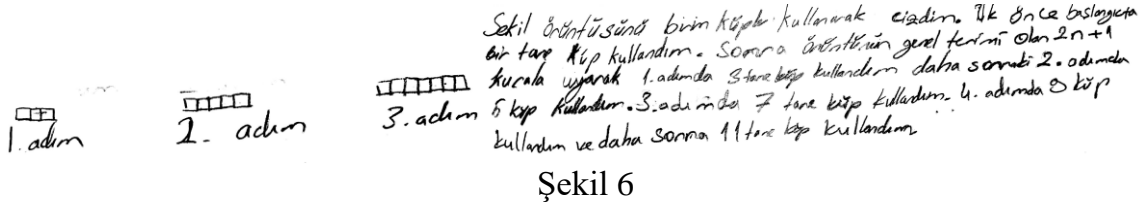 Şekil örüntüsünü birim küpler kullanarak çizdim. İlk önce başlangıçta
bir tane küp kullandım. Sonra örüntünün genel terimi olan 2n+1
kurala uyarak 1. adımda 3 tane küp kullandım daha sonraki 2. adımda
5 küp kullandım. 3. adımda 7 tane küp kullandım. 4. adımda 9 küp
kullandım ve daha sonra 11 tane küp kullandım
1. adım
2. adım
3. adım
Şekil 6